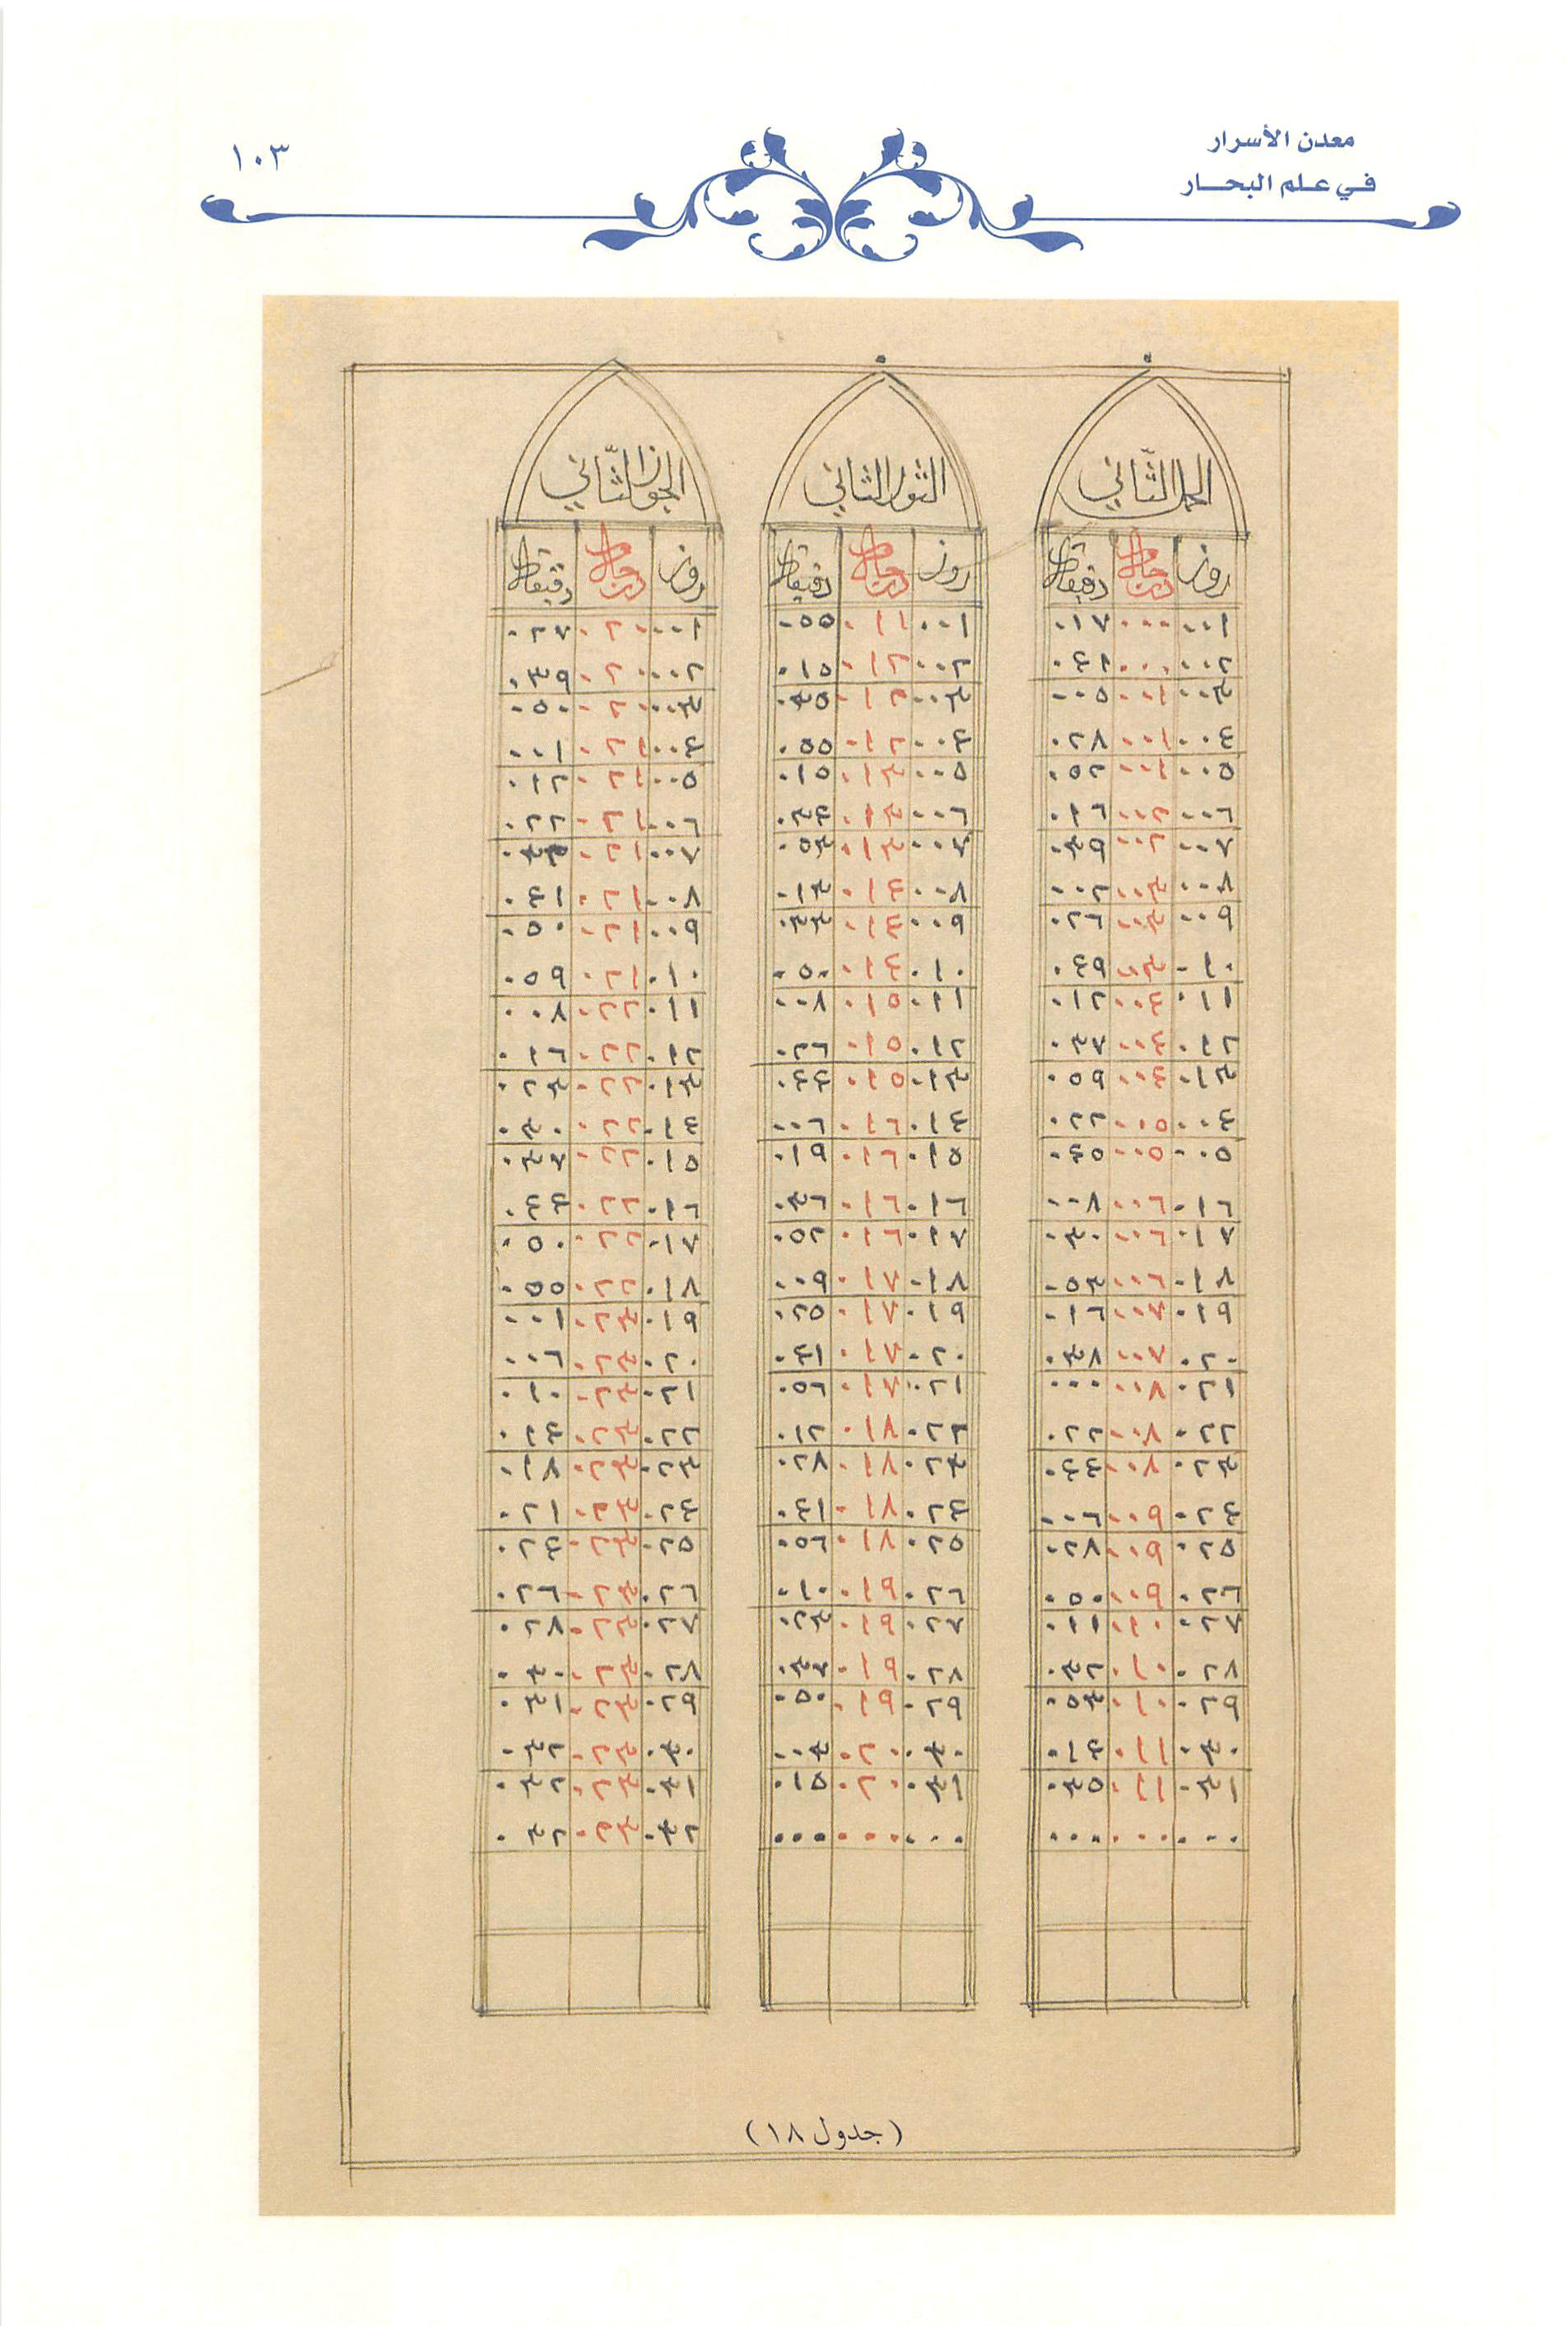 معدن الأسرار
في علم البحار
١٠٣
الحمل الثاني
روز درجات دقيقات
٠٠١ ٠٠٠ ٠١٧
٠٠٢ ٠٠٠ ٠٤١
٠٠٣ ٠٠١ ٠٠٥
٠٠٤ ٠٠١ ٠٢٨
٠٠٥ ٠٠١ ٠٥٢
٠٠٦ ٠٠٢ ٠١٦
٠٠٧ ٠٠٢ ٠٣٩
٠٠٨ ٠٠٣ ٠٠٢
٠٠٩ ٠٠٣ ٠٢٦
٠١٠ ٠٠٣ ٠٤٩
٠١١ ٠٠٤ ٠١٢
٠١٢ ٠٠٤ ٠٣٧
٠١٣ ٠٠٤ ٠٥٩
٠٠٤ ٠٠٥ ٠٢٢
٠٠٥ ٠٠٥ ٠٤٥
٠١٦ ٠٠٦ ٠٠٨
٠١٧ ٠٠٦ ٠٣٠
٠١٨ ٠٠٦ ٠٥٣
٠١٩ ٠٠٧ ٠١٦
٠٢٠ ٠٠٧ ٠٣٨
٠٢١ ٠٠٨ ٠٠٠
٠٢٢ ٠٠٨ ٠٢٢
٠٢٣ ٠٠٨ ٠٤٤
٠٢٤ ٠٠٩ ٠٠٦
٠٢٥ ٠٠٩ ٠٢٨
٠٢٦ ٠٠٩ ٠٥٠
٠٢٧ ٠١٠ ٠١١
٠٢٨ ٠١٠ ٠٣٢
٠٢٩ ٠١٠ ٠٥٣
٠٣٠ ٠١١ ٠١٤
٠٣١ ٠١١ ٠٣٥
٠٠٠ ٠٠٠ ٠٠٠
الثور الثاني
روز درجات دقيقات
٠٠١ ٠١١ ٠٥٥
٠٠٢ ٠١٢ ٠١٥
٠٠٣ ٠١٢ ٠٣٥
٠٠٤ ٠١٢ ٠٥٥
٠٠٥ ٠١٣ ٠١٥
٠٠٦ ٠١٣ ٠٣٤
٠٠٧ ٠١٣ ٠٥٣
٠٠٨ ٠١٤ ٠١٣
٠٠٩ ٠١٤ ٠٣٣
٠١٠ ٠١٤ ٠٥٠
٠١١ ٠١٥ ٠٠٨
٠١٢ ٠١٥ ٠٢٦
٠١٣ ٠١٥ ٠٤٤
٠١٤ ٠١٦ ٠٠٦
٠١٥ ٠١٦ ٠١٩
٠١٦ ٠١٦ ٠٣٦
٠١٧ ٠١٦ ٠٥٢
٠١٨ ٠١٧ ٠٠٩
٠١٩ ٠١٧ ٠٢٥
٠٢٠ ٠١٧ ٠٤١
٠٢١ ٠١٧ ٠٥٦
٠٢٢ ٠١٨ ٠١٢
٠٢٣ ٠١٨ ٠٢٨
٠٢٤ ٠١٨ ٠٤١
٠٢٥ ٠١٨ ٠٥٦
٠٢٦ ٠١٩ ٠١٠
٠٢٧ ٠١٩ ٠٢٣
٠٢٨ ٠١٩ ٠٣٧
٠٢٩ ٠١٩ ٠٥٠
٠٣٠ ٠٢٠ ٠٠٣
٠٣١ ٠٢٠ ٠١٥
٠٠٠ ٠٠٠ ٠٠٠
الجوزا الثاني
روز درجات دقيقات
٠٠١ ٠٢٠ ٠٢٧
٠٠٢ ٠٢٠ ٠٣٩
٠٠٣ ٠٢٠ ٠٥٠
٠٠٤ ٠٢١ ٠٠١
٠٠٥ ٠٢١ ٠١٢
٠٠٦ ٠٢١ ٠٢٢
٠٠٧ ٠٢١
٠٠٨ ٠٢١ ٠٤١
٠٠٩ ٠٢١ ٠٥٠
٠١٠ ٠٢١ ٠٥٩
٠١١ ٠٢٢ ٠٠٨
٠١٢ ٠٢٢ ٠١٦
٠١٣ ٠٢٢ ٠٢٣
٠١٤ ٠٢٢ ٠٣٠
٠١٥ ٠٢٢ ٠٣٧
٠١٦ ٠٢٢ ٠٤٤
٠١٧ ٠٢٢ ٠٥٠
٠١٨ ٠٢٢ ٠٥٥
٠١٩ ٠٢٣ ٠٠١
٠٢٠ ٠٢٣ ٠٠٦
٠٢١ ٠٢٣ ٠١٠
٠٢٢ ٠٢٣ ٠١٤
٠٢٣ ٠٢٣ ٠١٨
٠٢٤ ٠٢٣ ٠٢١
٠٢٥ ٠٢٣ ٠٢٤
٠٢٦ ٠٢٣ ٠٢٦
٠٢٧ ٠٢٣ ٠٢٨
٠٢٨ ٠٢٣ ٠٣٠
٠٢٩ ٠٢٣ ٠٣١
٠٣٠ ٠٢٣ ٠٣٢
٠٣١ ٠٢٣ ٠٣٢
٠٣٢ ٠٢٣ ٠٣٢
(جدول ١٨)